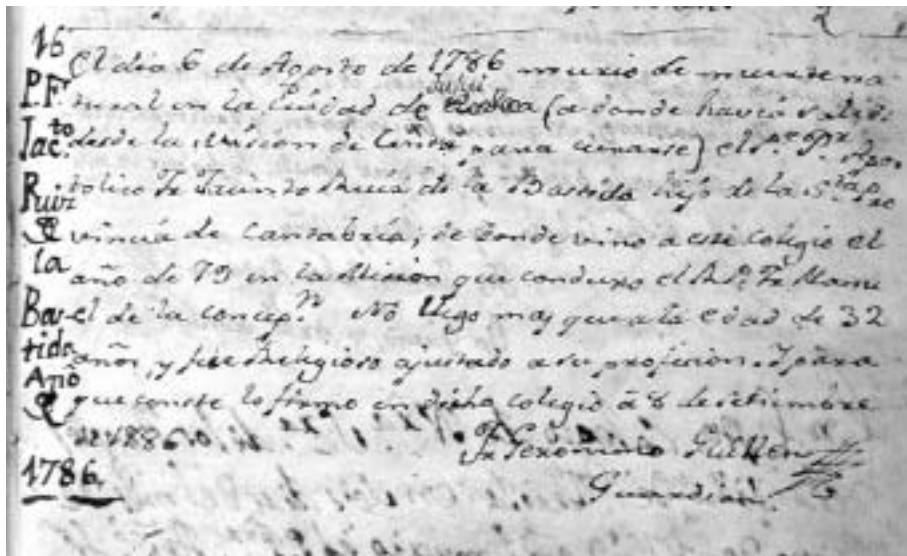 16
P. F.
Jac.to
Ruiz
de
la
Bas
tida
Año
de
1786.
El dia 6 de Agosto de 1786 murio de muerte na
tural en la Ciudad de Jujui (a donde havia salido
desde la Mision de Centa para curarse) el P.e P.r Apos
tolico Fr. Jacinto Ruiz de la Bastida hijo de la S.ta Pro
vincia de Cantabria; de donde vino a este colegio el
año de 79 en la Mision que conduxo el R. P. Fr. Manu
el de la Concep.n No llego mas que a la edad de 32
años, y fue Religioso ajustado a su profesion. Y para
que conste lo firmo en dicho colegio à 8 de setiembre
de 1786.
Fr. Geronimo Guillen
Guardian